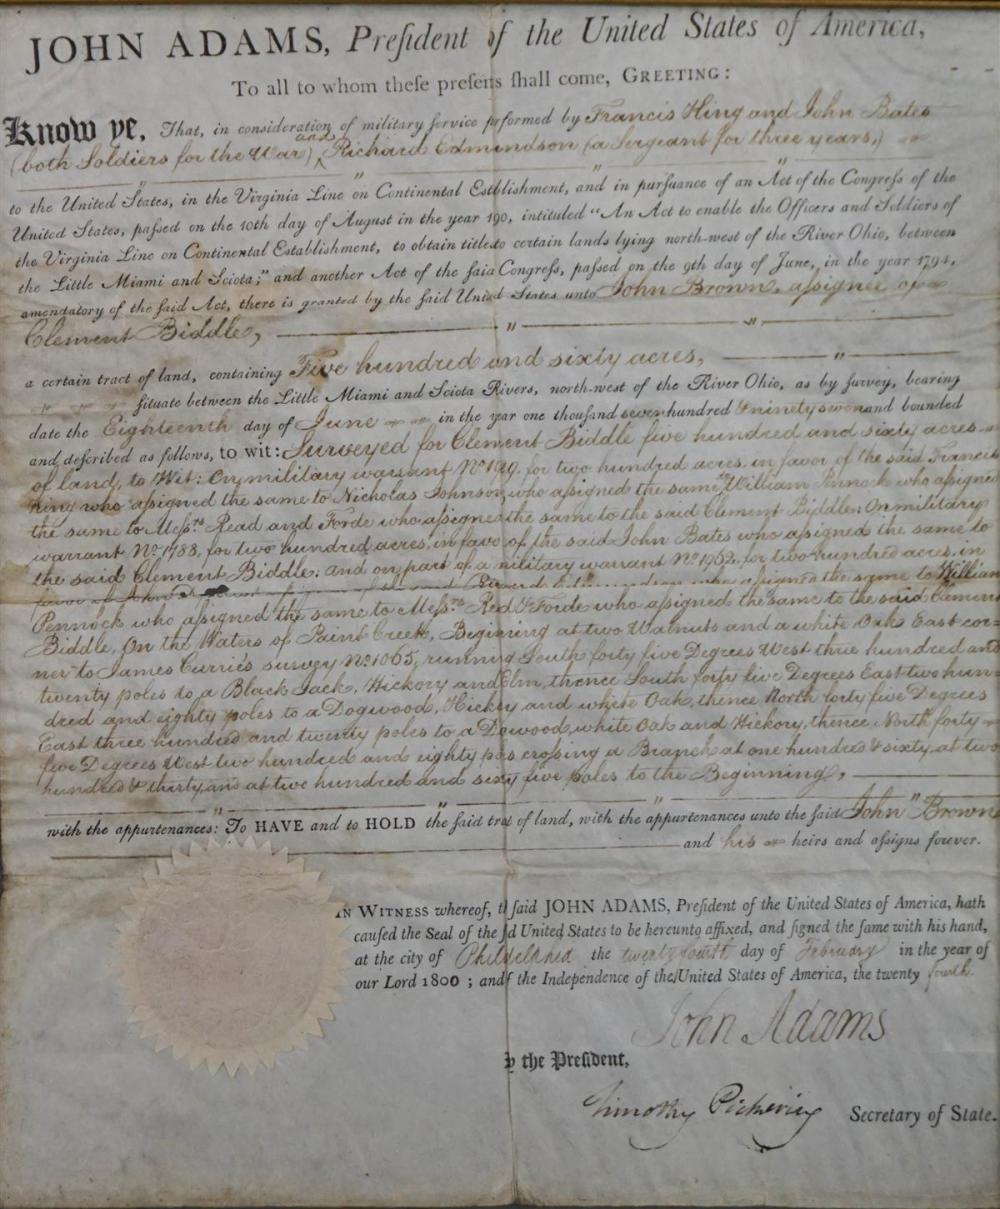 JOHN ADAMS, Preſident of the United States of America,
To all to whom theſe preſents ſhall come, GREETING:
Know ye, That, in consideration of military ſervice performed by Francis King and John Bates
(both Soldiers for the War) and Richard Edmindson (a Sergeant for three years,)
to the United States, in the Virginia Line on Continental Establishment, and in purſuance of an Act of the Congreſs of the
United States, paſsed on the 10th day of August in the year 190, intituled "An Act to enable the Officers and Soldiers of
the Virginia Line on Continental Establishment, to obtain titles to certain lands lying north-west of the River Ohio, between
the Little Miami and Sciota;" and another Act of the ſaia Congreſs, paſsed on the 9th day of June, in the year 1794,
amendatory of the ſaid Act, there is granted by the ſaid United States unto John Brown, aſsignee of
Clement Biddle,
a certain tract of land, containing Five hundred and sixty acres,
ſituate between the Little Miami and Sciota Rivers, north-west of the River Ohio, as by ſurvey, bearing
date the Eighteenth day of June in the year one thouſand seven hundred & ninety seven and bounded
and deſcribed as follows, to wit: Surveyed for Clement Biddle five hundred and sixty acres
of land, to Wit: On military warrant No 199, for two hundred acres, in favor of the said Francis
King who aſsigned the same to Nicholas Johnson, who aſsigned the same to William Pennock who aſsigned
the same to Meſsrs Read and Forde who aſsigned the same to the said Clement Biddle: On military
warrant No 1788, for two hundred acres, in favo of the said John Bates who aſsigned the same to
the said Clement Biddle: and on part of a military warrant No 1963, for two hundred acres, in
favor of who aſsigned the same to William
Pennock who aſsigned the same to Meſsrs Red & Forde who aſsigned the same to the said Clement
Biddle, On the Waters of Paint Creek, Beginning at two Walnuts and a white Oak East cor=
ner to James Curries survey No 1065, running South forty five Degrees West three hundred and
twenty poles to a Black Jack, Hickory and Elm, thence South forty five Degrees East two hun=
dred and eighty poles to a Dogwood, Hickry and white Oak, thence North forty five Degrees
East three hundred and twenty poles to a Dowood, white Oak and Hickory, thence North forty
five Degrees West two hundred and eighty pos crossing a Branch at one hundred & sixty, at two
hundred & thirty, and at two hundred and sixy five poles to the Beginning,
with the appurtenances: To HAVE and to HOLD the ſaid trat of land, with the appurtenances unto the ſaid John Brown
and his heirs and aſsigns forever.
IN WITNESS whereof, t ſaid JOHN ADAMS, Preſident of the United States of America, hath
cauſed the Seal of the ſd United States to be hereunto affixed, and ſigned the ſame with his hand,
at the city of Philidelphia the twenty fourth day of February in the year of
our Lord 1800; and f the Independence of the United States of America, the twenty fourth.
John Adams
y the Preſident,
Timothy Pickering Secretary of State.